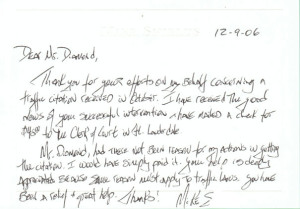 12-9-06
Dear Mr. Diamond,
Thank you for your efforts on my behalf concerning a
traffic citation received in October. I have received the good
news of your successful intervention & have mailed a check for
to the Clerk of Court in Ft. Lauderdale
Mr. Diamond, had there not been reason for my actions in getting
the citation, I would have simply paid it. Your help is
appreciated because reason must apply to traffic laws. You have
been a relief & great help. Thanks!